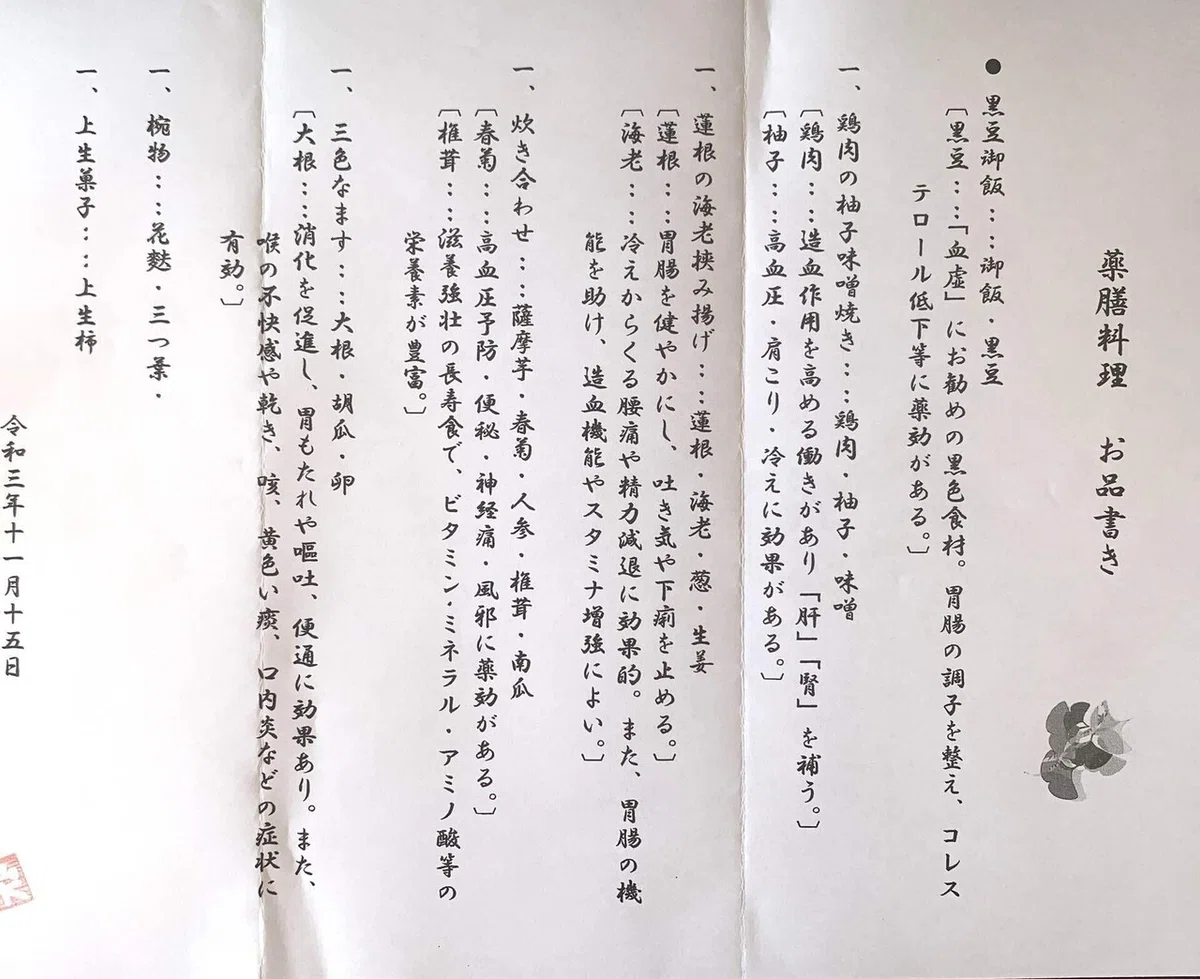 薬膳料理　お品書き
●黒豆御飯：：御飯・黒豆
〔黒豆：：「血虚」にお勧めの黒色食材。胃腸の調子を整え、コレス
テロール低下等に薬効がある。〕
一、鶏肉の柚子味噌焼き：：鶏肉・柚子・味噌
〔鶏肉：：造血作用を高める働きがあり「肝」「腎」を補う。〕
〔柚子：：高血圧・肩こり・冷えに効果がある。〕
一、蓮根の海老挟み揚げ：：蓮根・海老・葱・生姜
〔蓮根：：胃腸を健やかにし、吐き気や下痢を止める。〕
〔海老：：冷えからくる腰痛や精力減退に効果的。また、胃腸の機
能を助け、造血機能やスタミナ増強によい。〕
一、炊き合わせ：：薩摩芋・春菊・人参・椎茸・南瓜
〔春菊：：高血圧予防・便秘・神経痛・風邪に薬効がある。〕
〔椎茸：：滋養強壮の長寿食で、ビタミン・ミネラル・アミノ酸等の
栄養素が豊富。〕
一、三色なます：：大根・胡瓜・卵
〔大根：：消化を促進し、胃もたれや嘔吐、便通に効果あり。また、
喉の不快感や乾き、咳、黄色い痰、口内炎などの症状に
有効。〕
一、椀物：：花麩・三つ葉・
一、上生菓子：：上生柿
令和三年十一月十五日